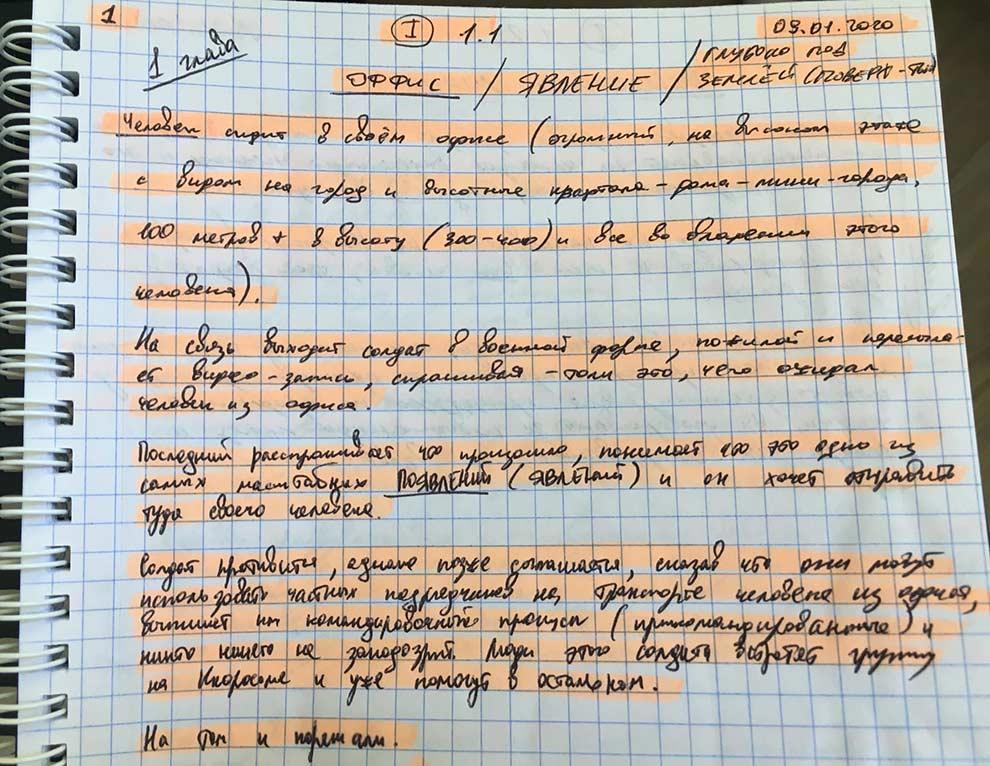 1
I 1.1
09.01.2020
1 глава
ОФФИС / ЯВЛЕНИЕ / ГЛУБОКО ПОД
ЗЕМЛЁЙ
Человек сидит в своём офисе (огромный, на высоком этаже
с видом на город и высотные квартала-дома-мини-города,
100 метров + в высоту (300-400) и все во владении этого
человека).
На связь выходит солдат в военной форме, пожилой и
видео-запись, спрашивая - то ли это, чего ожидал
человек из офиса.
Последний расспрашивает что произошло, понимает что это одно из
самых масштабных ПОЯВЛЕНИЙ (ЯВЛЕНИЙ) и он хочет отправить
туда своего человека.
Солдат противится, однако позже соглашается, сказав что они могут
использовать частных подрядчиков на транспорте человека из офиса,
выпишет им командировочный пропуск (прикомандированные) и
никто ничего не заподозрит. Люди этого солдата встретят группу
на и уже помогут в остальном.
На том и порешали.